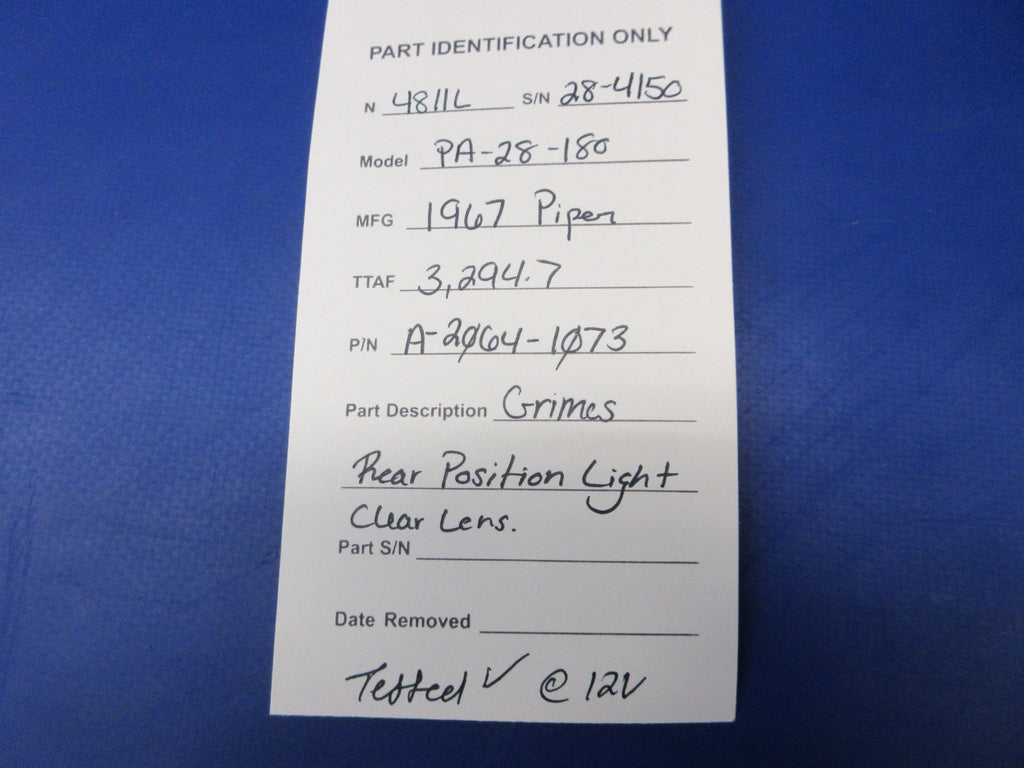 PART IDENTIFICATION ONLY
N 4811L S/N 28-4150
Model PA-28-180
MFG 1967 Piper
TTAF 3,294.7
P/N A-2064-1073
Part Description Grimes
Rear Position Light
Clear Lens.
Part S/N
Date Removed
Tested ✓ @ 12V